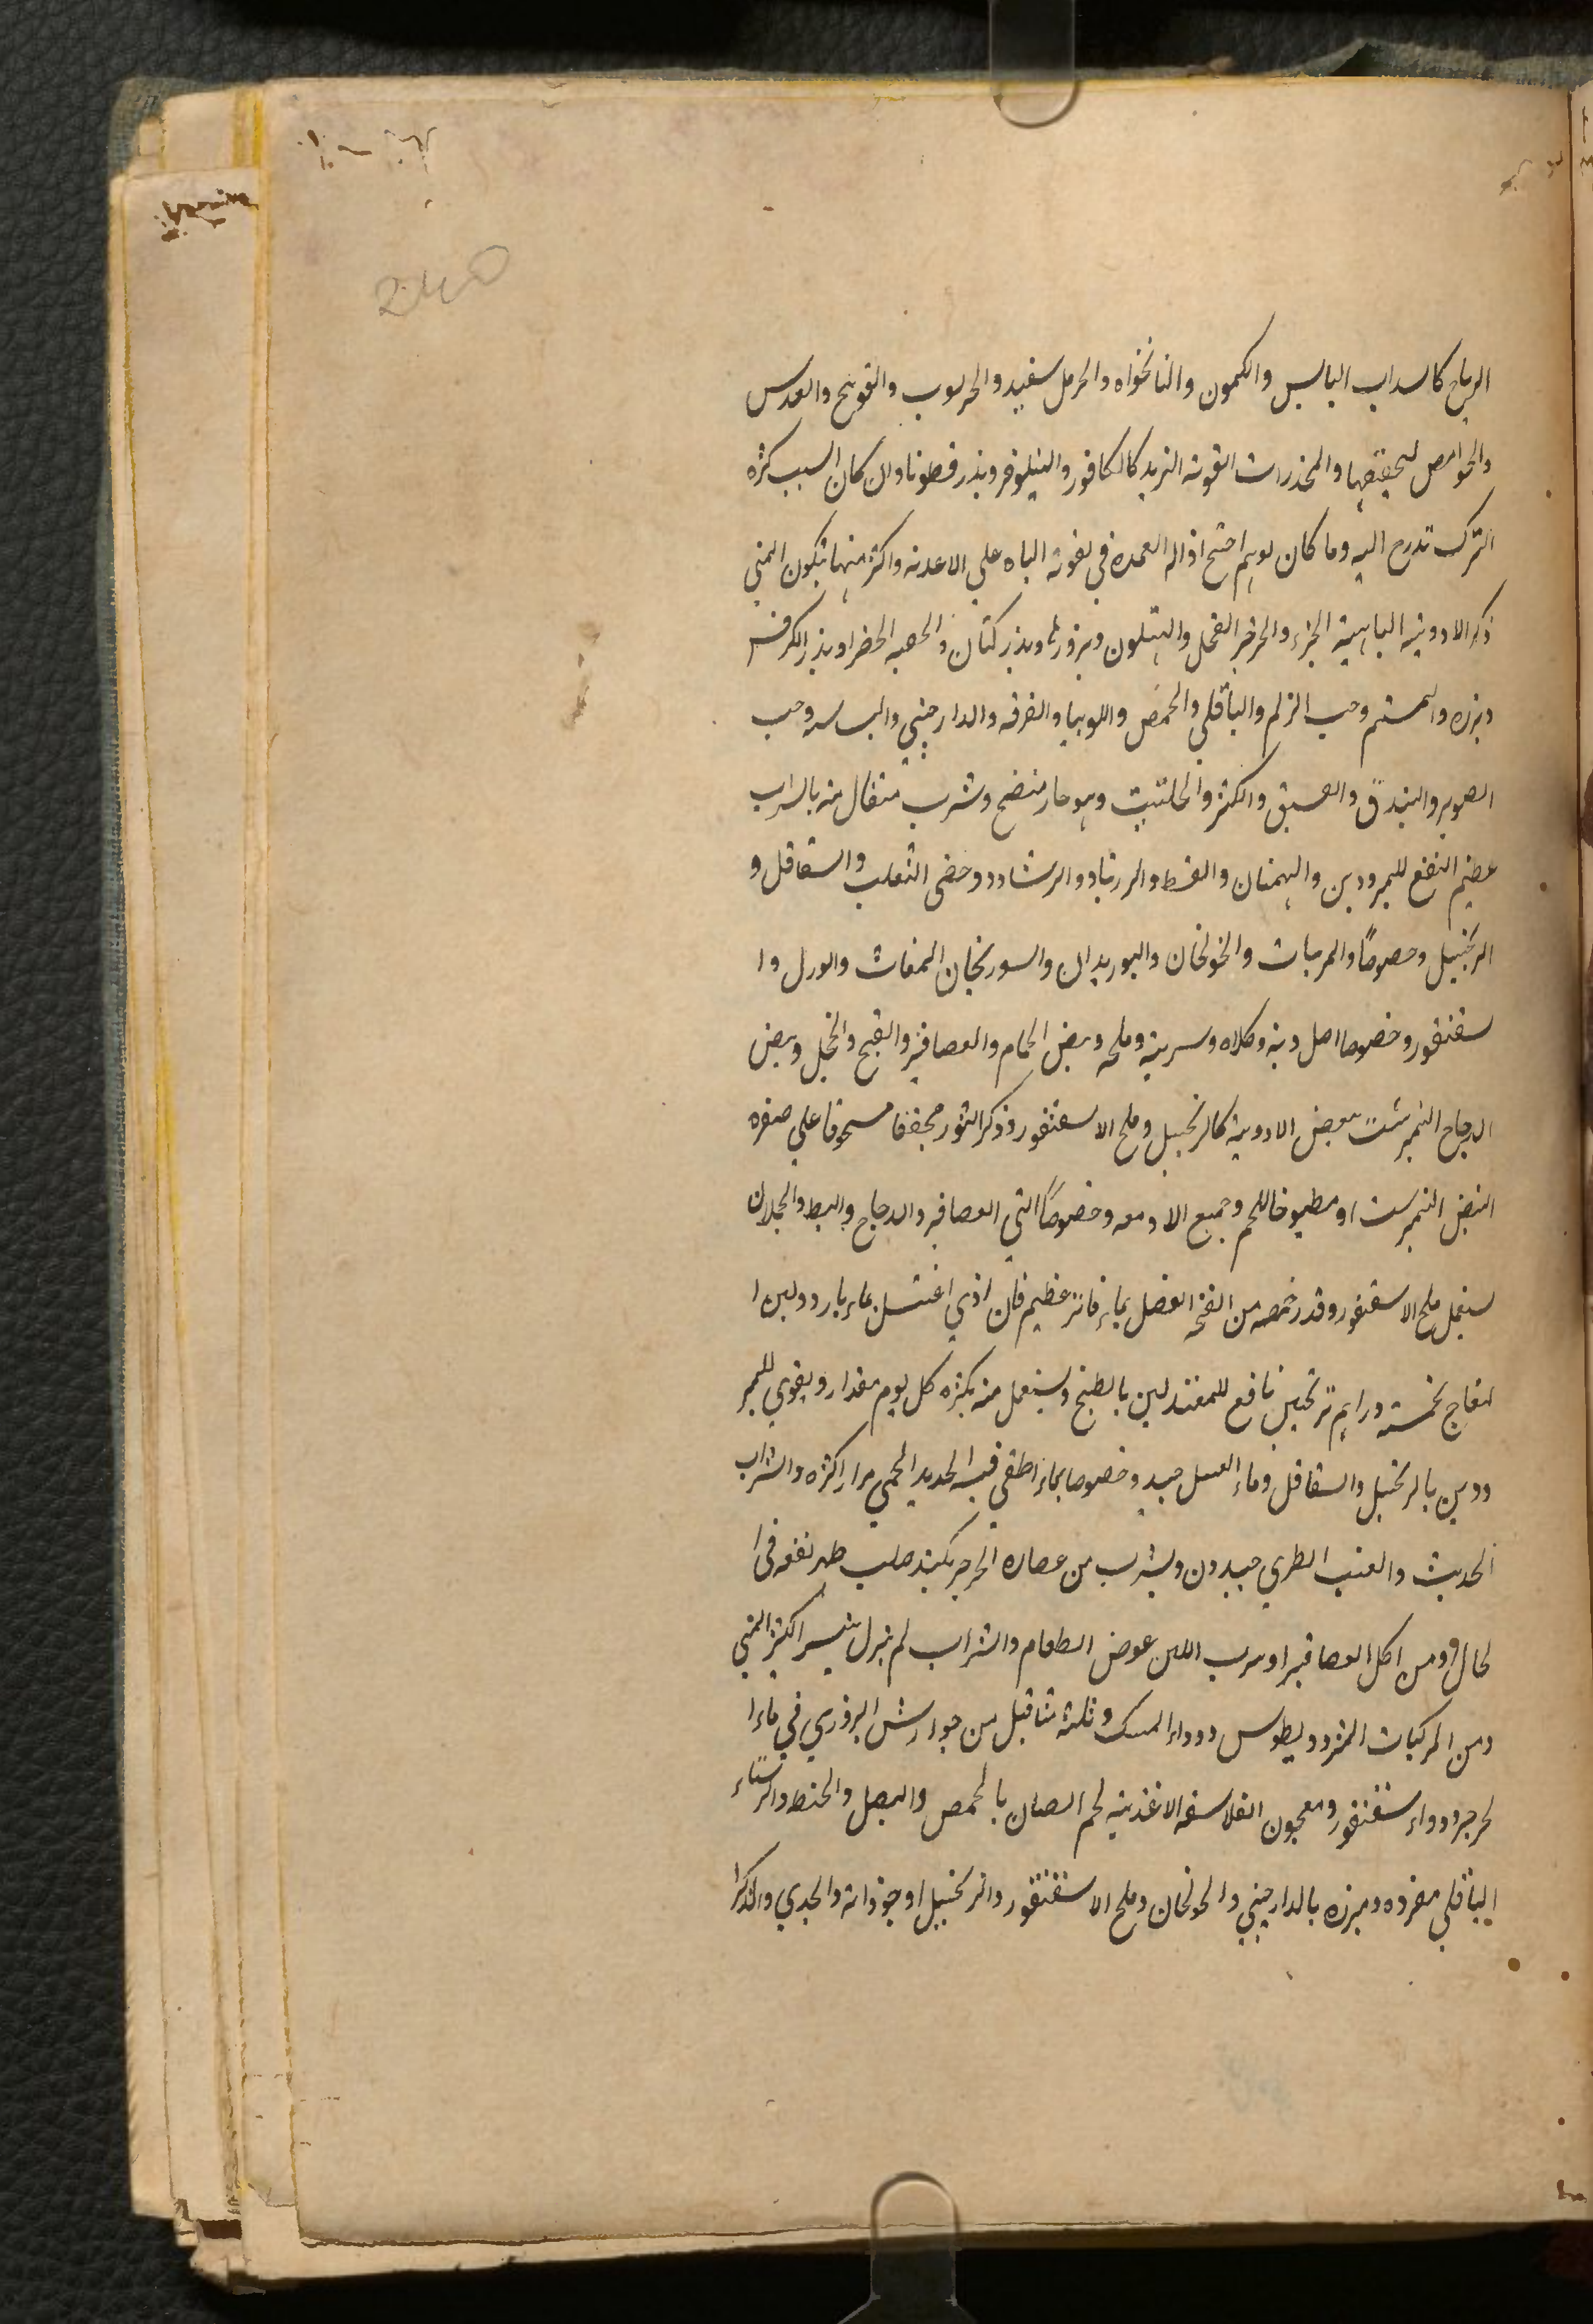 240
الرياح كالسداب اليابس والكمون والنانخواه والحرمل سفيد والخرنوب والفوتنج والعدس
والحوامض لتجفيفها والمخدرات القوية التبريد كالكافور والنيلوفر وبذر قطونا وان كان السبب كثره
الترك تدرج اليه وما كان لوهم احتيج ازاله العمده في تقوية الباه علي الاغدية واكثر منها تكون المني
ذكر الادوية الباهية الجزر والجرجير الفجل والهليون وبزورها وبذر كتان والحبه الخضرا وبذر الكرفس
وبزره والسمسم وحب الزلم والباقلي والحمص واللوبيا والقرفه والدارچيني والبسباسه وحب
الصنوبر والبندق والفستق والكثر والحلتيت وهو حار منضج وشرب مثقال منه بالشراب
عظيم النفع للمبرودين والبهمنان والقسط والزرنباد والرشاد وخصي الثعلب والشقاقل و
الزنجبيل وخصوصًا والمربيات والخولنجان والبوزيدان والسورنجان المغاث والورل وا
سقنقور وخصوصا اصل ذنبه وكلاه وسرته وملحه وبيض الحمام والعصافير والقبج والحجل وبيض
الدجاج النمبرشت ببعض الادوية كالزنجبيل وملح الاسقنقور وذكر الثور مجففا مسحوقا علي صفره
البيض النمبرشت او مطبوخا للحم وجميع الادمغه وخصوصًا التي العصافير والدجاج والبط والحملان
يستعمل ملح الاسقنقور وقدر حمصه من انفخه الفصل بماء فاتر عظيم فان اذي اغتسل بماء بارد ولبن ا
لنعاج بخمسة دراهم ترنجبين نافع للمعتدلين بالطبخ ويستعمل منه بكره كل يوم مقدار ويقوي للمبر
ودين بالزنجبيل والشقاقل وماء العسل جيد وخصوصا بماء اطفي فيه الحديد المحمي مرارا كثره والشراب
الحديث والعنب الطري جيدون ويشرب من عصاره الجرجير بنبيذ صلب ظهر نفعه في ا
لحال ومن اكل العصافير او شرب اللبن عوض الطعام والشراب لم يزل منتشرا كثير المني
ومن المركبات المثرود يطوس ودواء المسك وثلثة مثاقيل من جوارش البزوري في ماء ا
لجرجير ودواء سقنقور ومعجون الفلاسفه الاغذيه لحم الضان بالحمص والبصل والحنطه والرشتاء
الباقلي مفرده ومبزره بالدارچيني والخولنجان وملح الاسقنقور والزنجبيل او جوذابه والجدي والذكر